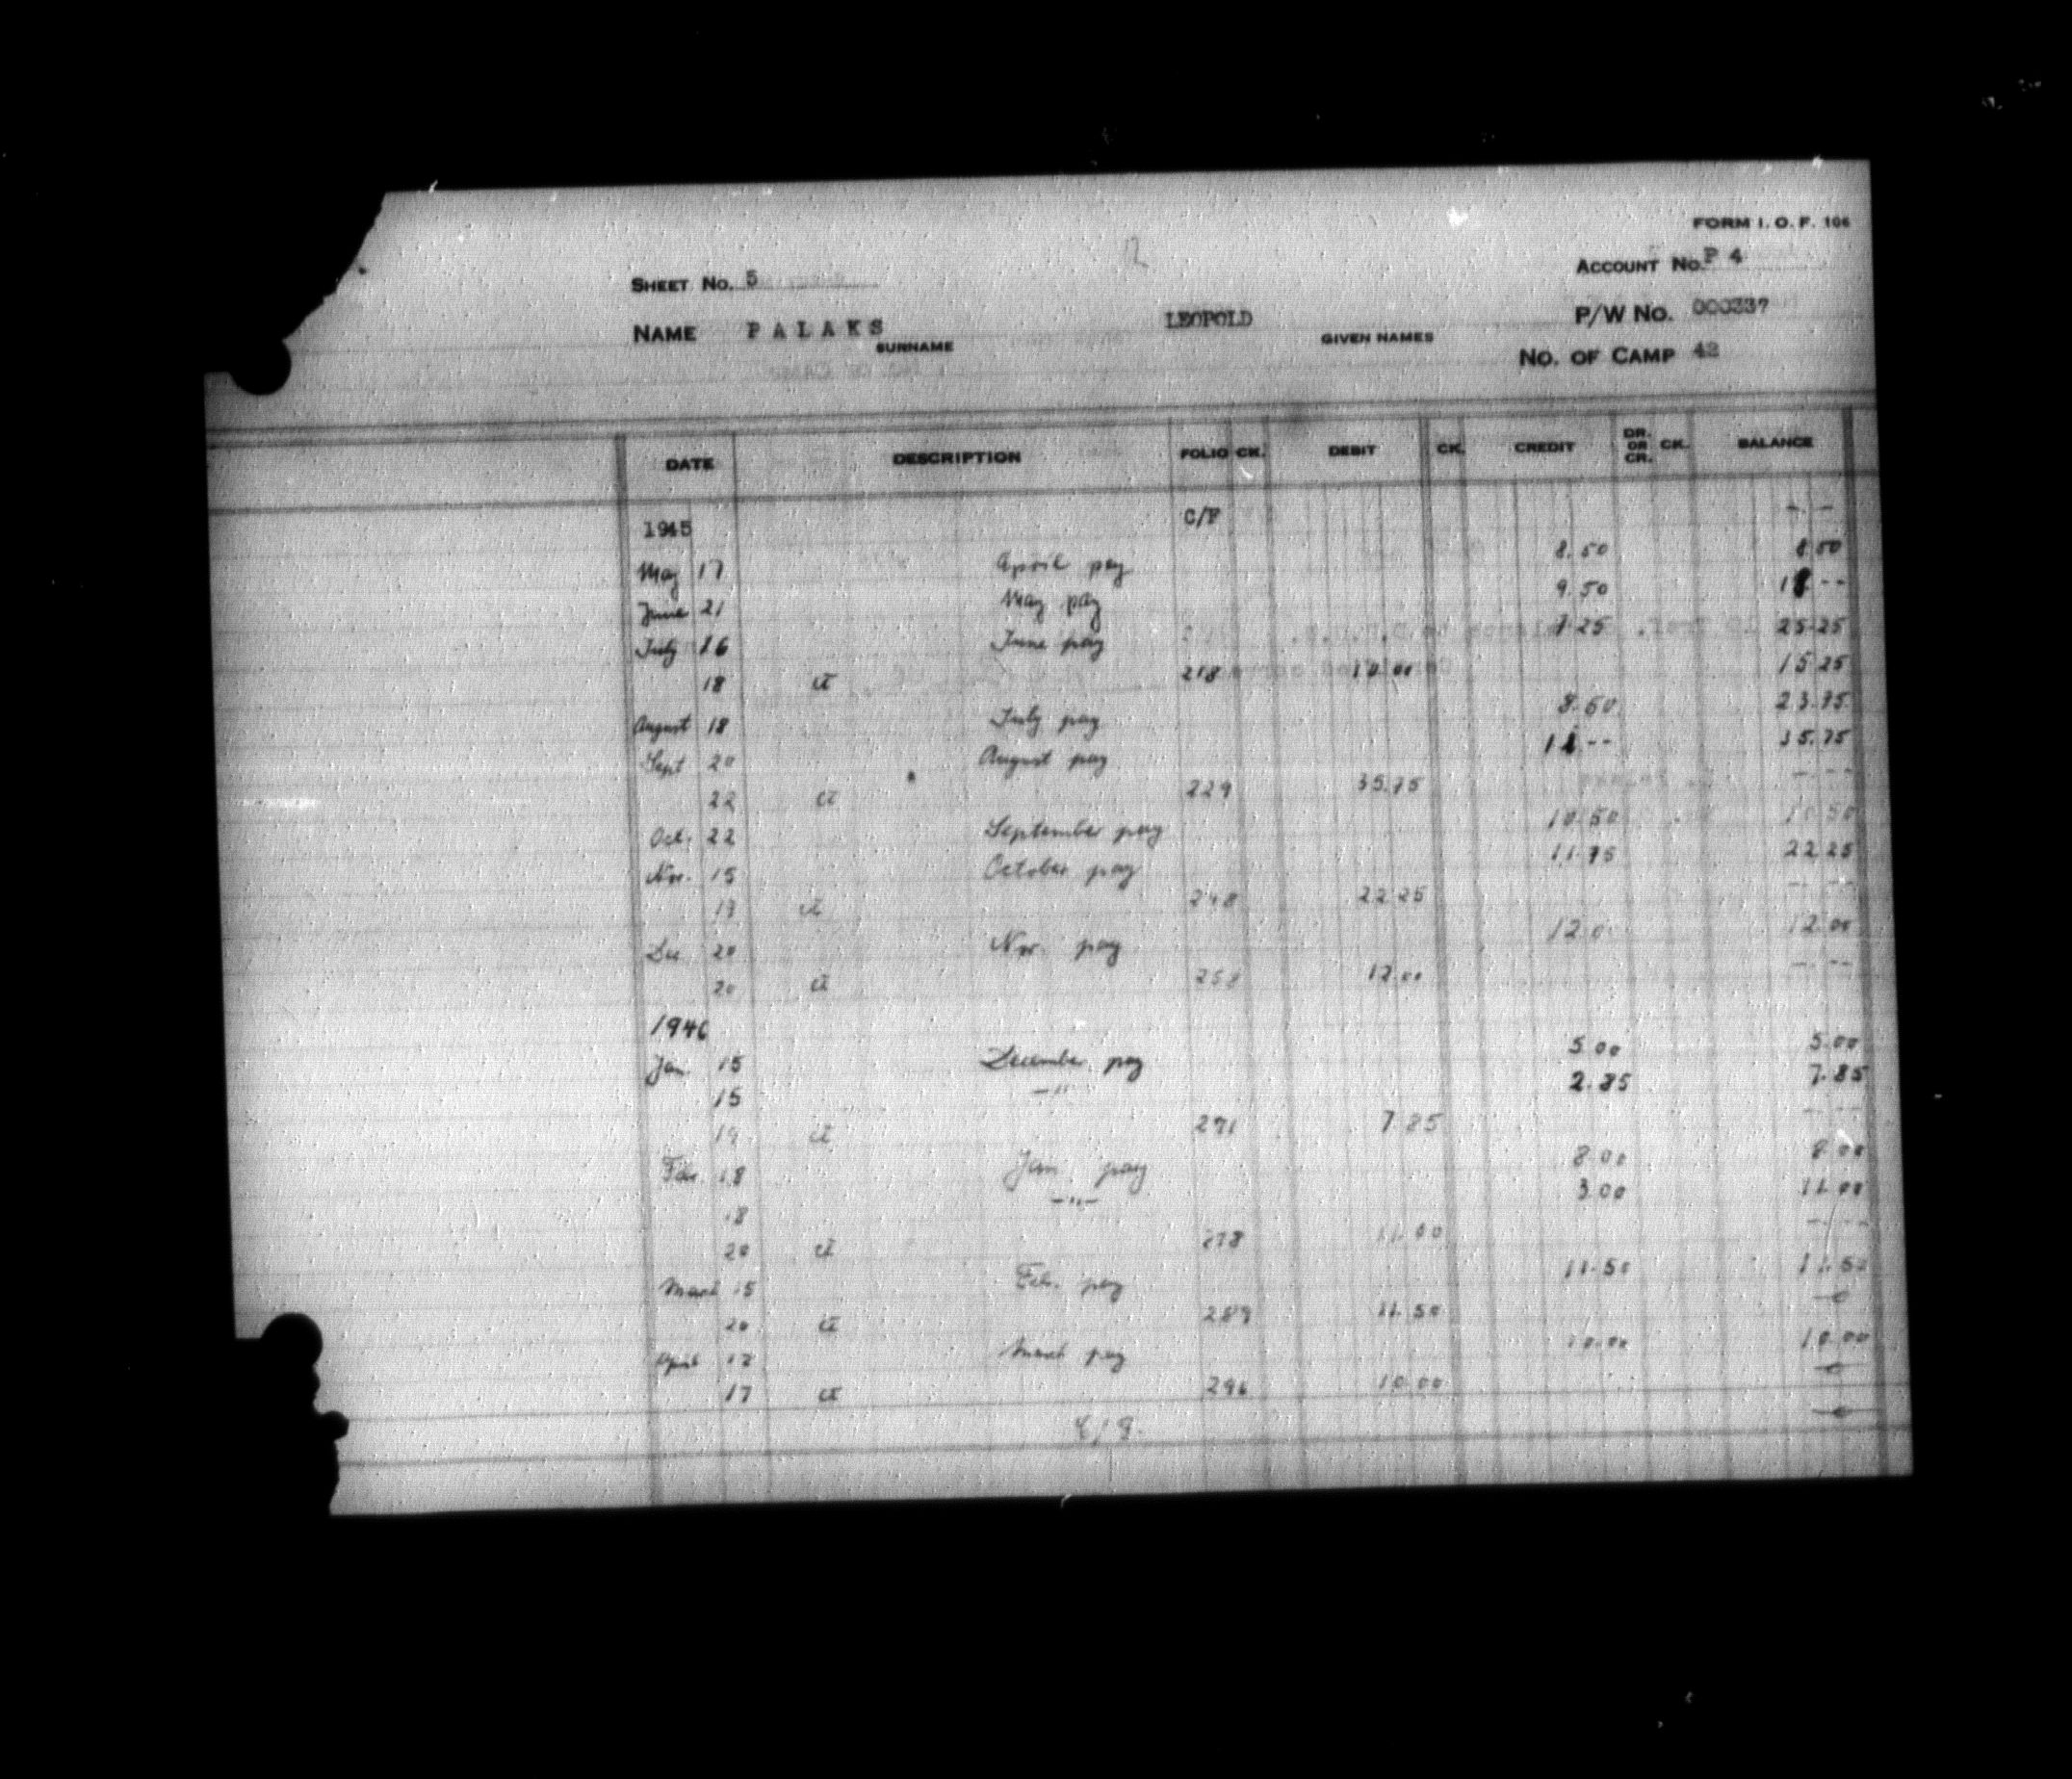 FORM I. O. F. 106
SHEET NO. 5
ACCOUNT NO. P 4
NAME PALAKS LEOPOLD
SURNAME GIVEN NAMES
P/W NO. 000337
NO. OF CAMP 42
DATE DESCRIPTION FOLIO CK. DEBIT CK. CREDIT DR. OR CR. CK. BALANCE
1945 C/F -.-
May 17 April pay 8.50 8.50
June 21 May pay 9.50 18.--
July 16 June pay 7.25 25.25
18 ct 218 10.00 15.25
August 18 July pay 8.50 23.75
Sept 20 August pay 12.-- 35.75
22 ct 229 35.75 -.--
Oct. 22 September pay 10.50 10.50
Nov. 15 October pay 11.75 22.25
19 ct 248 22.25 -.--
Dec 20 Nov. pay 12.0 12.00
20 ct 258 12.00 -.--
1946
Jan. 15 December pay 5.00 5.00
15 -"- 2.85 7.85
19 ct 271 7.85 -.--
Feb. 18 Jan. pay 8.00 8.00
18 -"- 3.00 11.00
20 ct 278 11.00 -.--
March 15 Feb. pay 11.50 11.50
20 ct 289 11.50 -0-
April 17 March pay 10.00 10.00
17 ct 296 10.00 -0-
-0-